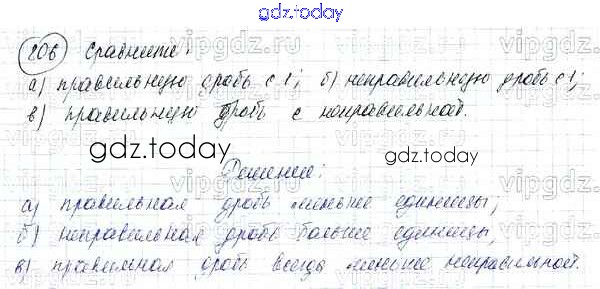 gdz.today
206 Сравните:
а) правильную дробь с 1; б) неправильную дробь с 1;
в) правильную дробь с неправильной.
gdz.today
Решение:
а) правильная дробь меньше единицы;
б) неправильная дробь больше единицы;
в) правильная дробь всегда меньше неправильной.
gdz.today